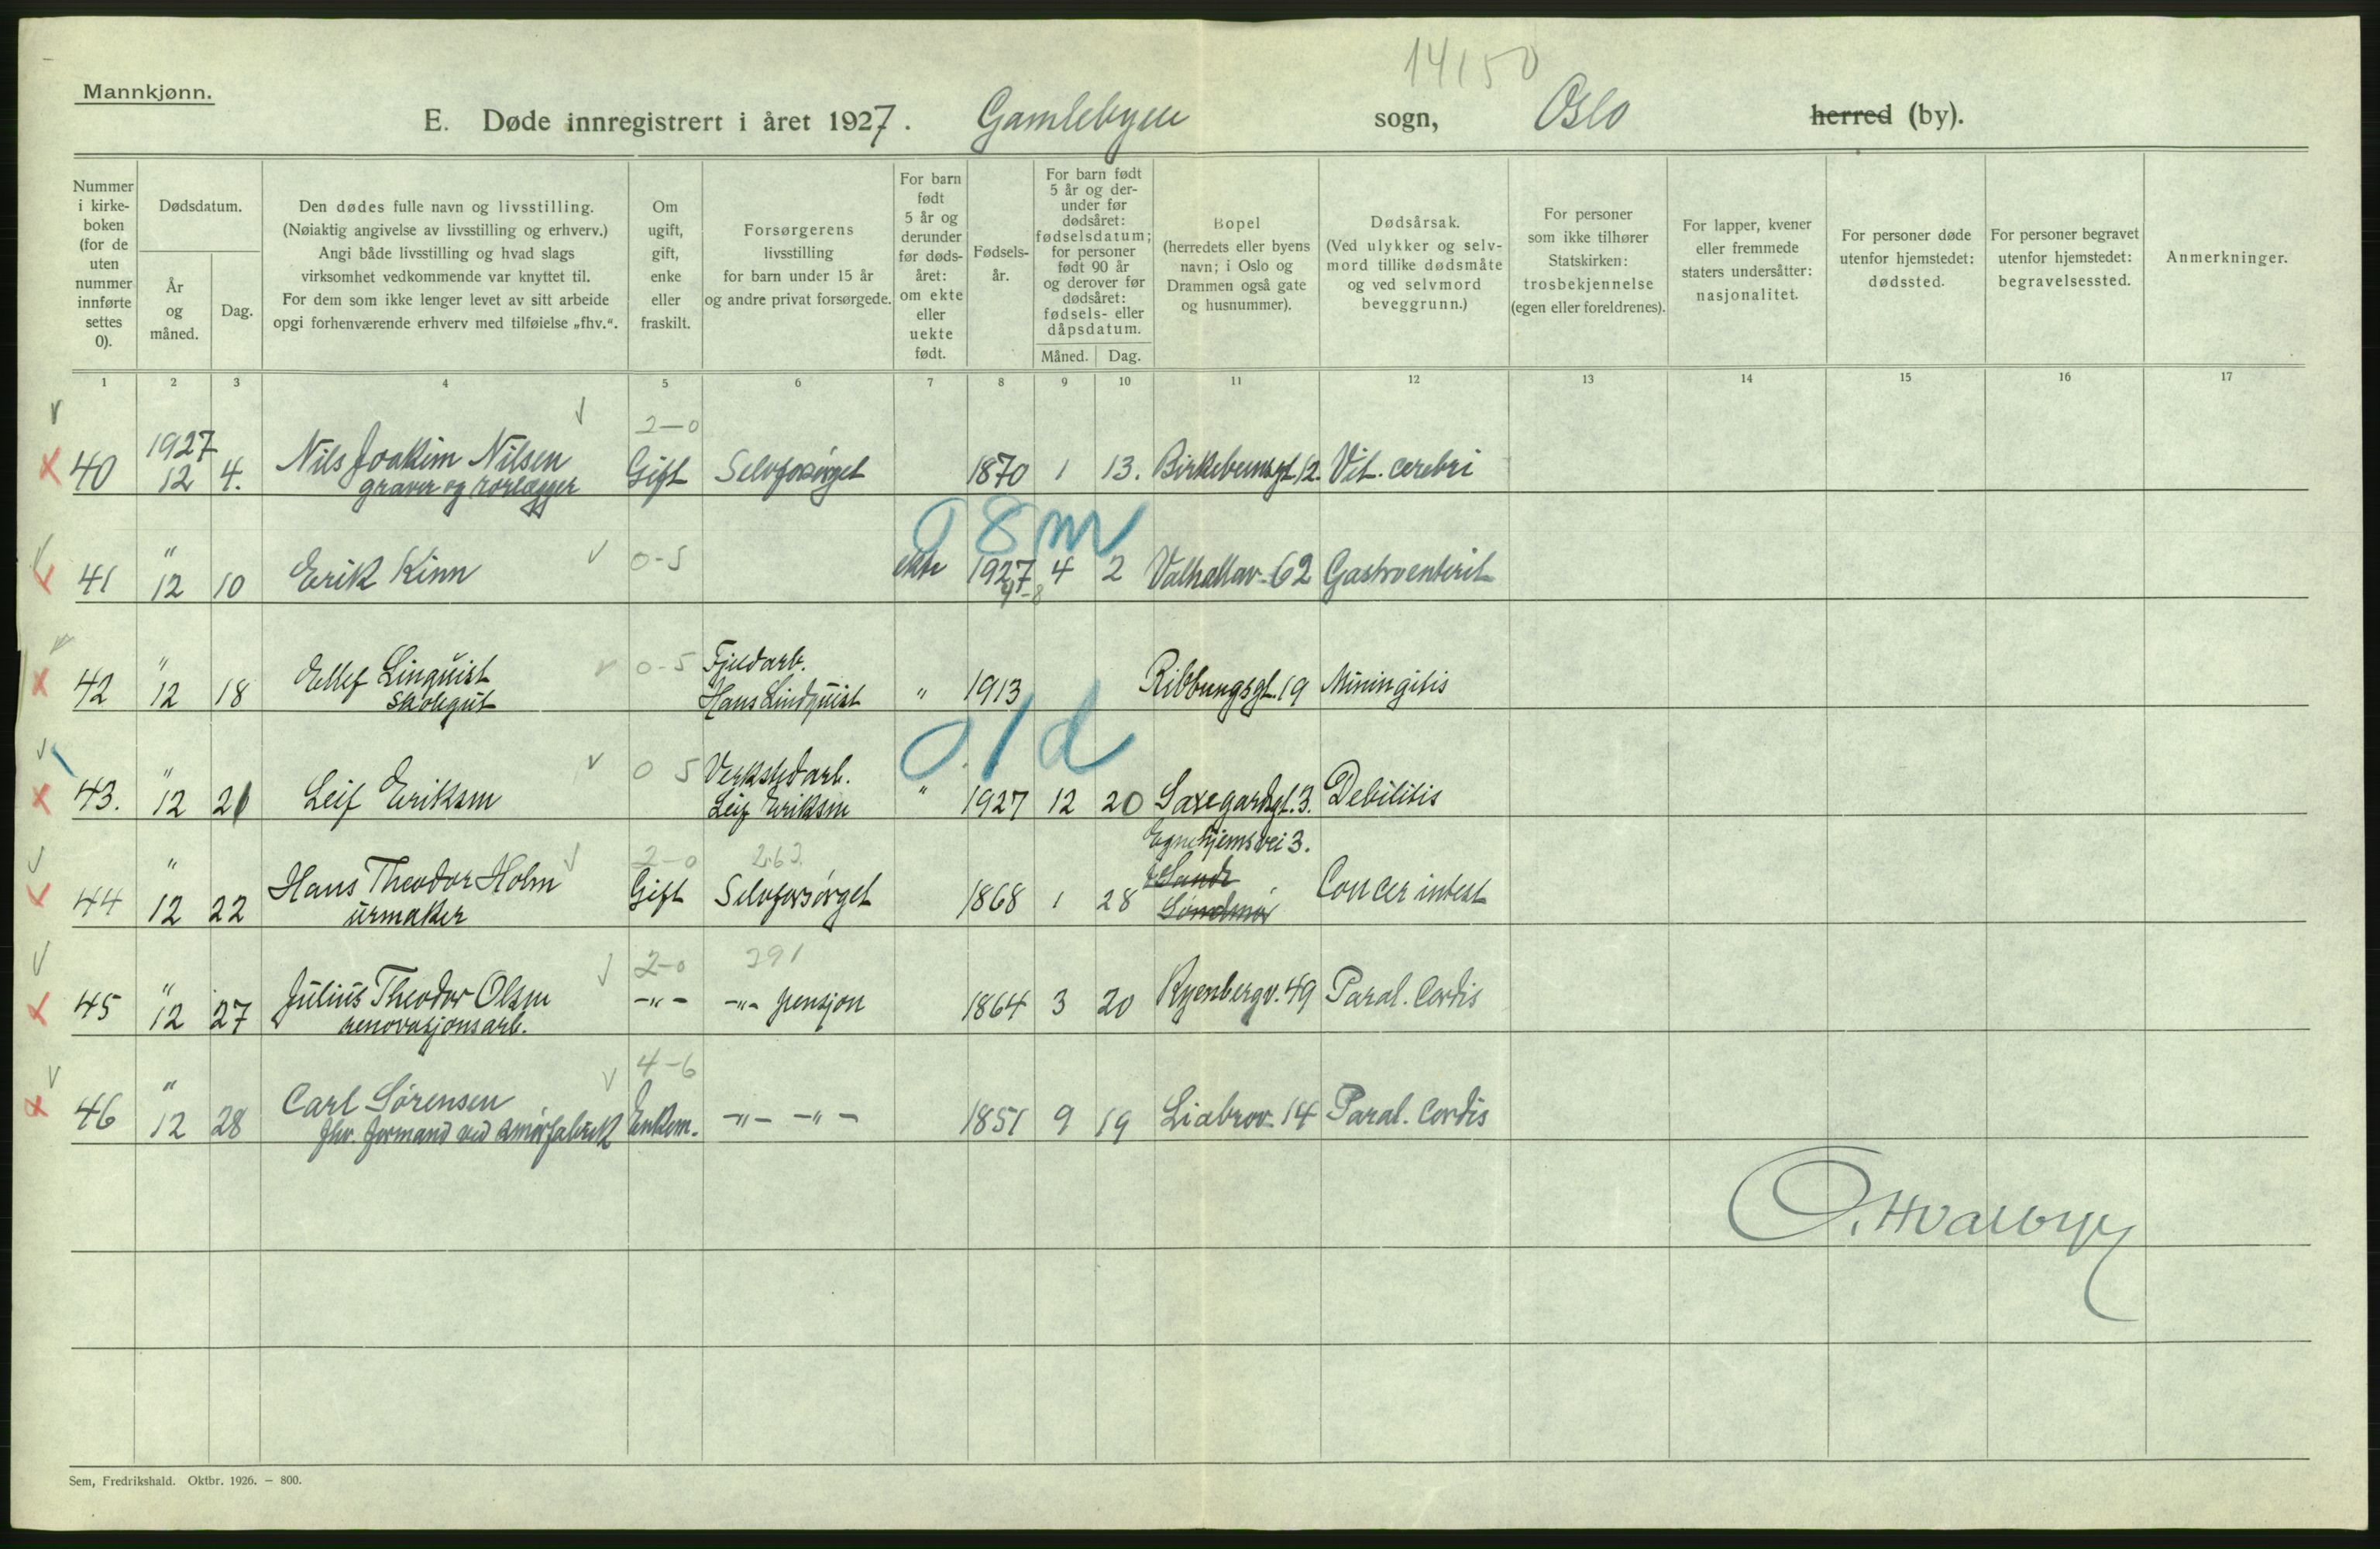 14150
Mannkjønn.
E. Døde innregistrert i året 1927. Gamlebyen sogn, Oslo herred (by).
Nummer i kirke- boken (for de uten nummer innførte settes 0).
Dødsdatum.
År og måned.
Dag.
Den dødes fulle navn og livsstilling.
(Nøiaktig angivelse av livsstilling og erhverv.)
Angi både livsstilling og hvad slags
virksomhet vedkommende var knyttet til.
For dem som ikke lenger levet av sitt arbeide
opgi forhenværende erhverv med tilføielse „fhv.“.
Om ugift, gift, enke eller fraskilt.
Forsørgerens
livsstilling
for barn under 15 år
og andre privat forsørgede.
For barn født 5 år og derunder før døds- året: om ekte eller uekte født.
Fødsels- år.
For barn født 5 år og der- under før dødsåret: fødselsdatum; for personer født 90 år og derover før dødsåret: fødsels- eller dåpsdatum.
Måned. Dag.
Bopel
(herredets eller byens
navn; i Oslo og
Drammen også gate
og husnummer).
Dødsårsak.
(Ved ulykker og selv-
mord tillike dødsmåte
og ved selvmord
beveggrunn.)
For personer
som ikke tilhører
Statskirken:
trosbekjennelse
(egen eller foreldrenes).
For lapper, kvener
eller fremmede
staters undersåtter:
nasjonalitet.
For personer døde
utenfor hjemstedet:
dødssted.
For personer begravet
utenfor hjemstedet:
begravelsessted.
Anmerkninger.
1 2 3 4 5 6 7 8 9 10 11 12 13 14 15 16 17
2-0
1927
40 12 4. Nils Joakim Nilsen Gift Selvforsørget 1870 1 13. Birkebeinsgt. 12. Vit. cerebri
graver og rørlægger
0 8 m
41 " 12 10 Erik Kinn 0-5 ekte 1927 4 2 Valhallav. 62 Gastroenterit
9-8
42 " 12 18 Ellef Linquist 0-5 Fjeldarb. " 1913 Ribbungsgt. 19 Miningitis
skolegut Hans Lindquist
0.1 d
43. " 12 21 Leif Eriksen 0 5 Verkstedarb. " 1927 12 20 Saxegardsgt. 3. Debilitis
Leif Eriksen
Egnehjemsvei 3.
2-0 263
44 " 12 22 Hans Theodor Holm Gift Selvforsørget 1868 1 28 Cancer intest
urmaker
2-0 291
45 " 12 27 Julius Theodor Olsen -"- -"- pensjon 1864 3 20 Ryenbergv. 49 Paral. Cordis
renovasjonsarb.
4-6
46 " 12 28 Carl Sørensen Enkem. -"- -"- 1851 9 19 Liabrov. 14 Paral. Cordis
fhv. formand ved smørfabrik
Sem, Fredrikshald. Oktbr. 1926. – 800.